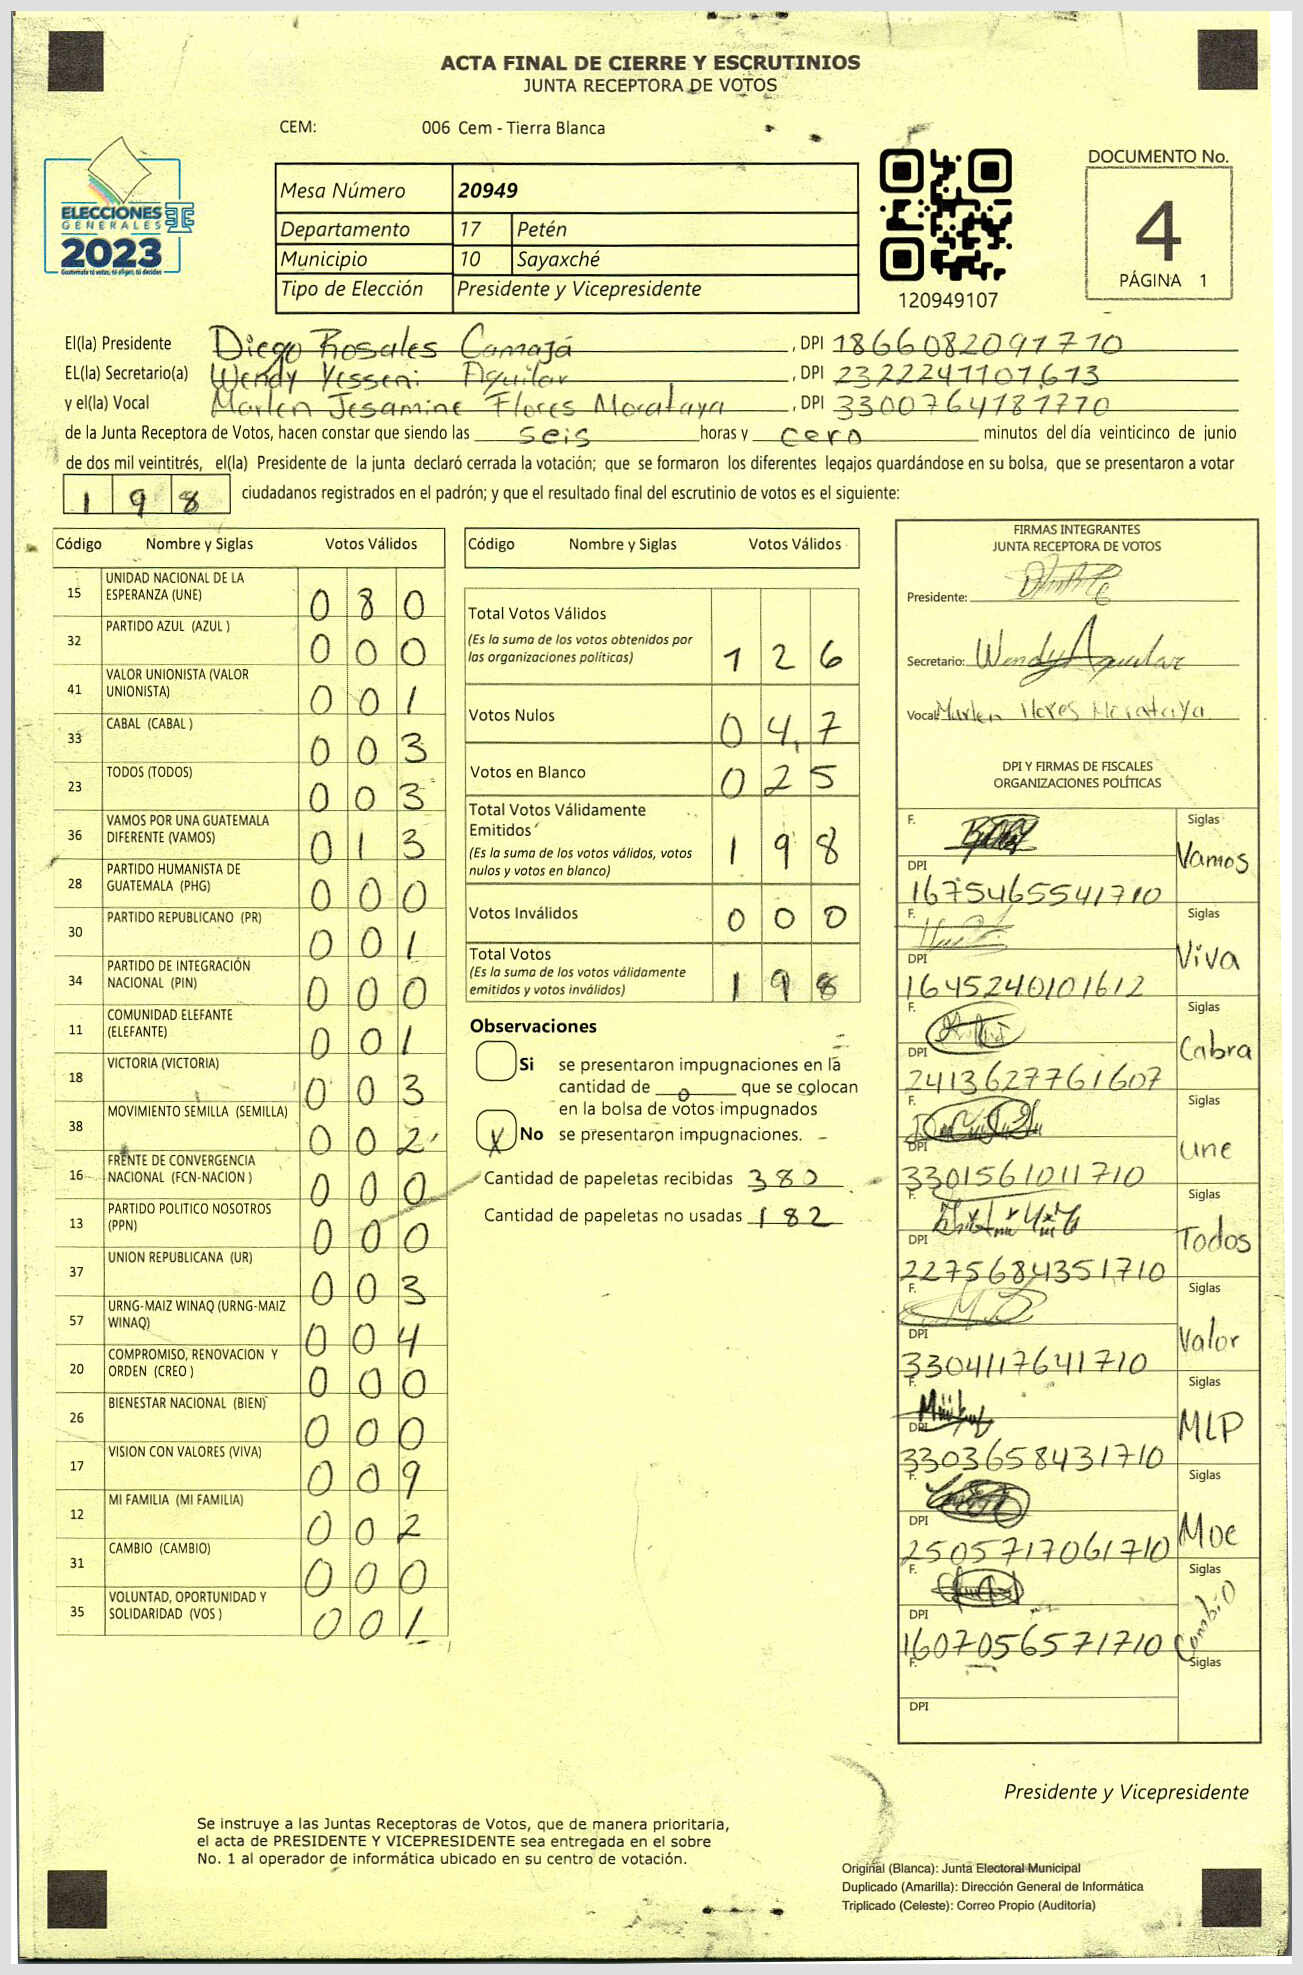 ACTA FINAL DE CIERRE Y ESCRUTINIOS
JUNTA RECEPTORA DE VOTOS
CEM: 006 Cem - Tierra Blanca
ELECCIONES
GENERALES
2023
Guatemala tú votas, tú eliges, tú decides
Mesa Número 20949
Departamento 17 Petén
Municipio 10 Sayaxché
Tipo de Elección Presidente y Vicepresidente
120949107
DOCUMENTO No.
4
PÁGINA 1
El(la) Presidente Diego Rosales Camajá , DPI 1866082091710
EL(la) Secretario(a) Wendy Yesseni Aguilar , DPI 2322241101613
y el(la) Vocal Marlen Jesamine Flores Morataya , DPI 3300764781770
de la Junta Receptora de Votos, hacen constar que siendo las seis horas y cero minutos del día veinticinco de junio
de dos mil veintitrés, el(la) Presidente de la junta declaró cerrada la votación; que se formaron los diferentes legajos guardándose en su bolsa, que se presentaron a votar
198 ciudadanos registrados en el padrón; y que el resultado final del escrutinio de votos es el siguiente:
Código Nombre y Siglas Votos Válidos
15 UNIDAD NACIONAL DE LA ESPERANZA (UNE) 0 8 0
32 PARTIDO AZUL (AZUL ) 0 0 0
41 VALOR UNIONISTA (VALOR UNIONISTA) 0 0 1
33 CABAL (CABAL ) 0 0 3
23 TODOS (TODOS) 0 0 3
36 VAMOS POR UNA GUATEMALA DIFERENTE (VAMOS) 0 1 3
28 PARTIDO HUMANISTA DE GUATEMALA (PHG) 0 0 0
30 PARTIDO REPUBLICANO (PR) 0 0 1
34 PARTIDO DE INTEGRACIÓN NACIONAL (PIN) 0 0 0
11 COMUNIDAD ELEFANTE (ELEFANTE) 0 0 1
18 VICTORIA (VICTORIA) 0 0 3
38 MOVIMIENTO SEMILLA (SEMILLA) 0 0 2
16 FRENTE DE CONVERGENCIA NACIONAL (FCN-NACION ) 0 0 0
13 PARTIDO POLITICO NOSOTROS (PPN) 0 0 0
37 UNION REPUBLICANA (UR) 0 0 3
57 URNG-MAIZ WINAQ (URNG-MAIZ WINAQ) 0 0 4
20 COMPROMISO, RENOVACION Y ORDEN (CREO ) 0 0 0
26 BIENESTAR NACIONAL (BIEN) 0 0 0
17 VISION CON VALORES (VIVA) 0 0 9
12 MI FAMILIA (MI FAMILIA) 0 0 2
31 CAMBIO (CAMBIO) 0 0 0
35 VOLUNTAD, OPORTUNIDAD Y SOLIDARIDAD (VOS ) 0 0 1
Código Nombre y Siglas Votos Válidos
Total Votos Válidos 1 2 6
(Es la suma de los votos obtenidos por
las organizaciones políticas)
Votos Nulos 0 4 7
Votos en Blanco 0 2 5
Total Votos Válidamente
Emitidos 1 9 8
(Es la suma de los votos válidos, votos
nulos y votos en blanco)
Votos Inválidos 0 0 0
Total Votos 1 9 8
(Es la suma de los votos válidamente
emitidos y votos inválidos)
Observaciones
Si se presentaron impugnaciones en la
cantidad de 0 que se colocan
en la bolsa de votos impugnados
X No se presentaron impugnaciones.
Cantidad de papeletas recibidas 380
Cantidad de papeletas no usadas 182
FIRMAS INTEGRANTES
JUNTA RECEPTORA DE VOTOS
Presidente:
Secretario: Wendy Aguilar
Vocal: Marlen Flores Morataya
DPI Y FIRMAS DE FISCALES
ORGANIZACIONES POLÍTICAS
F. Siglas Vamos
DPI 1675465541710
F. Siglas Viva
DPI 1645240101612
F. Siglas Cabra
DPI 2413627761607
F. Siglas une
DPI 3301561011710
F. Siglas Todos
DPI 2275684351710
F. Siglas Valor
DPI 3304117641710
F. Siglas MLP
DPI 3303658431710
F. Siglas Moe
DPI 2505717061710
F. Siglas Cambio
DPI 1607056571710
F. Siglas
DPI
Presidente y Vicepresidente
Se instruye a las Juntas Receptoras de Votos, que de manera prioritaria,
el acta de PRESIDENTE Y VICEPRESIDENTE sea entregada en el sobre
No. 1 al operador de informática ubicado en su centro de votación.
Original (Blanca): Junta Electoral Municipal
Duplicado (Amarilla): Dirección General de Informática
Triplicado (Celeste): Correo Propio (Auditoría)